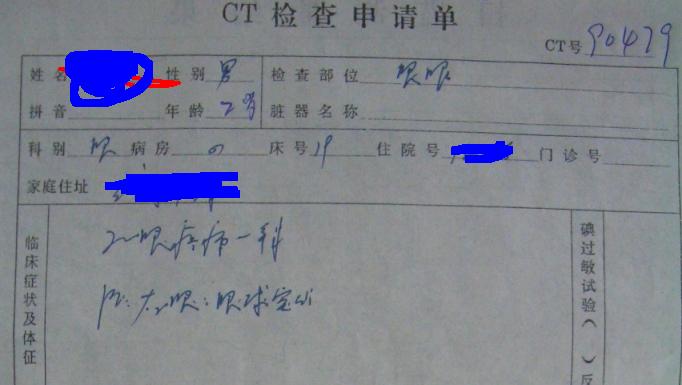 CT检查申请单
CT号 90479
姓名 性别 男 检查部位 双眼
拼音 年龄 2岁 脏器名称
科别 眼 病房 床号 19 住院号 门诊号
家庭住址
临床症状及体征
眼疼痛一
眼:眼球突出
碘过敏试验( )反